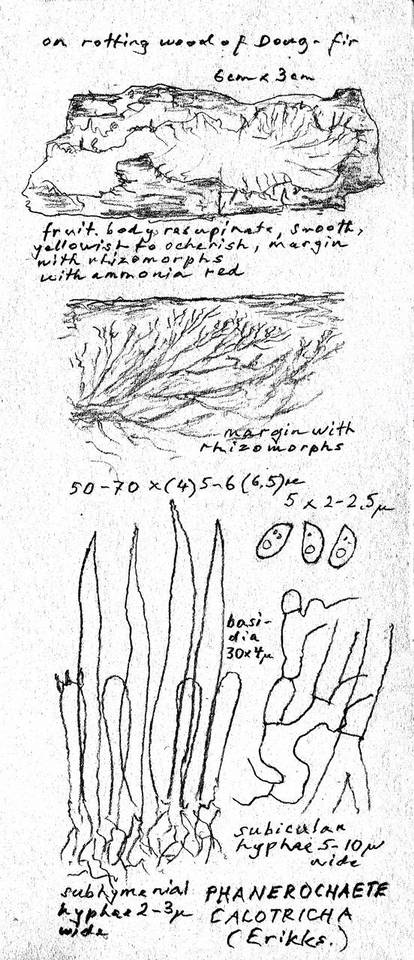 on rotting wood of Doug-fir
6cm x 3cm
fruit. body resupinate, smooth,
yellowish to ocherish, margin
with rhizomorphs
with ammonia red
margin with
rhizomorphs
50-70 x (4) 5-6 (6,5)µ
5 x 2-2,5µ
basi-
dia
30x4µ
subicular
hyphae 5-10µ
wide
subhymenial
hyphae 2-3µ
wide
PHANEROCHAETE
CALOTRICHA
(Erikks.)